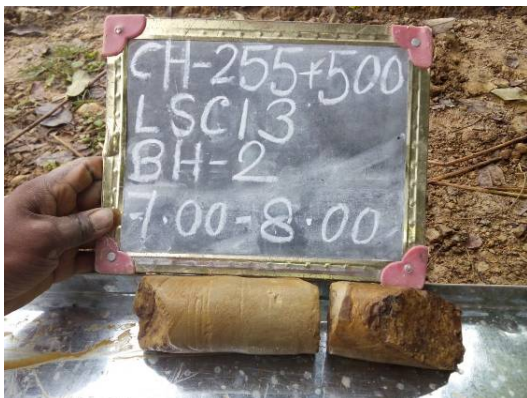 CH-255+500
LSC13
BH-2
7.00-8.00